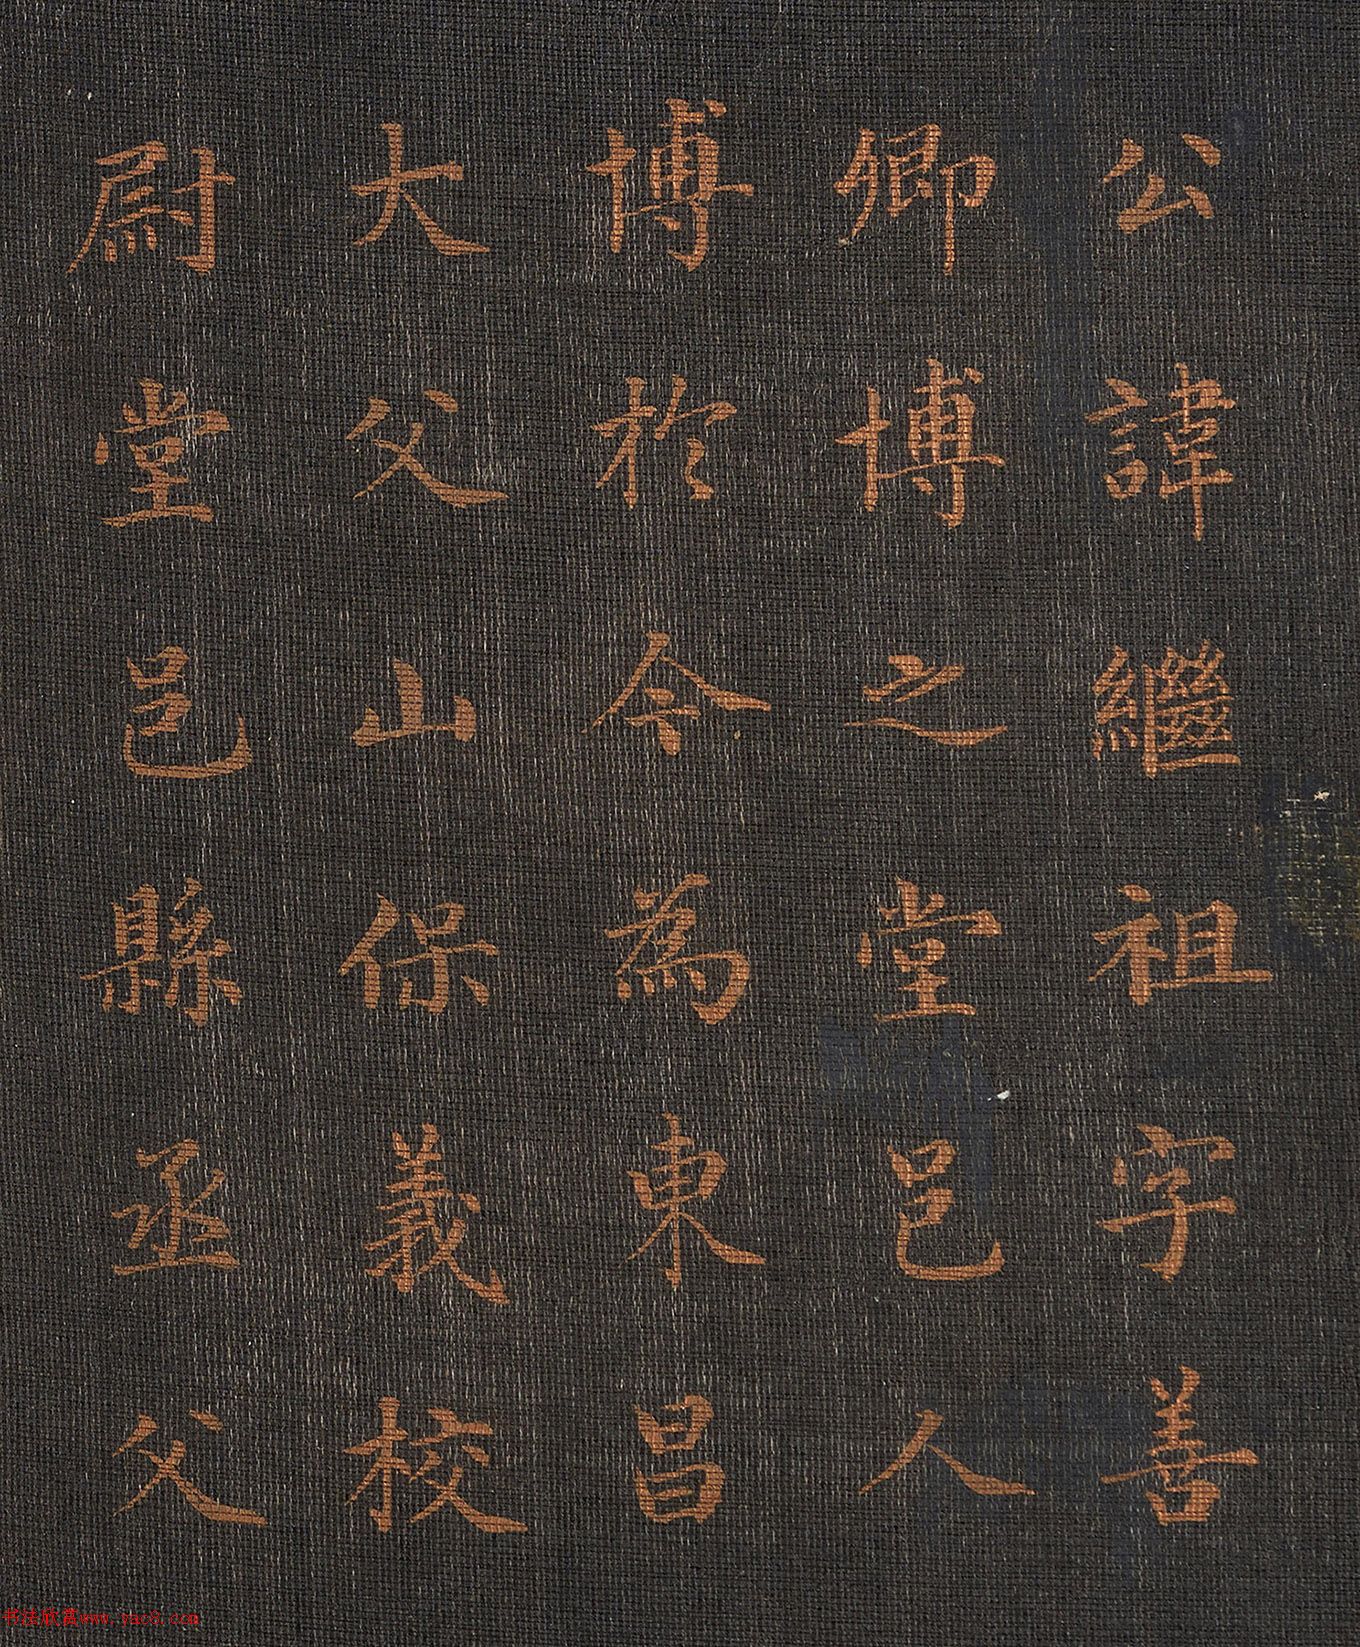 公諱繼祖字善
卿博之堂邑人
博於今為東昌
大父山保義校
尉堂邑縣丞父
书法欣赏www.yac8.com